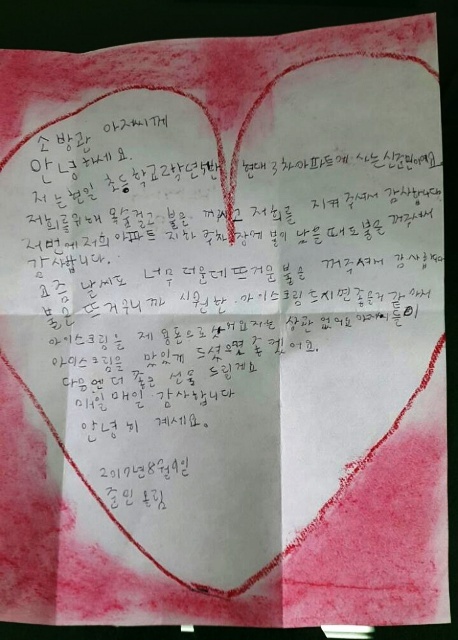 소방관 아저씨께
안녕하세요.
저는현일 초등학교2학년 현대3차아파트에 사는신준민이에요
저희를위해 목숨걸고 불을 끄시고 저희를 지켜주셔서 감사합니다.
저번에저희아파트 지하 주차장에 불이 났을때도불을 꺼주셔서
감사합니다.
요즘 날씨도 너무 더운데뜨거운불을 꺼주셔서 감사합니다
불은 뜨거우니까 시원한 아이스크림 드시면좋을거 같아서
아이스크림을 제 용돈으로 상관 없어요 아저씨들이
아이스크림을 맛있게 드셨으면 좋겠어요.
다음엔더 좋은 선물 드릴게요
매일매일 감사합니다
안녕히 계세요.
2017년8월9일
준민올림